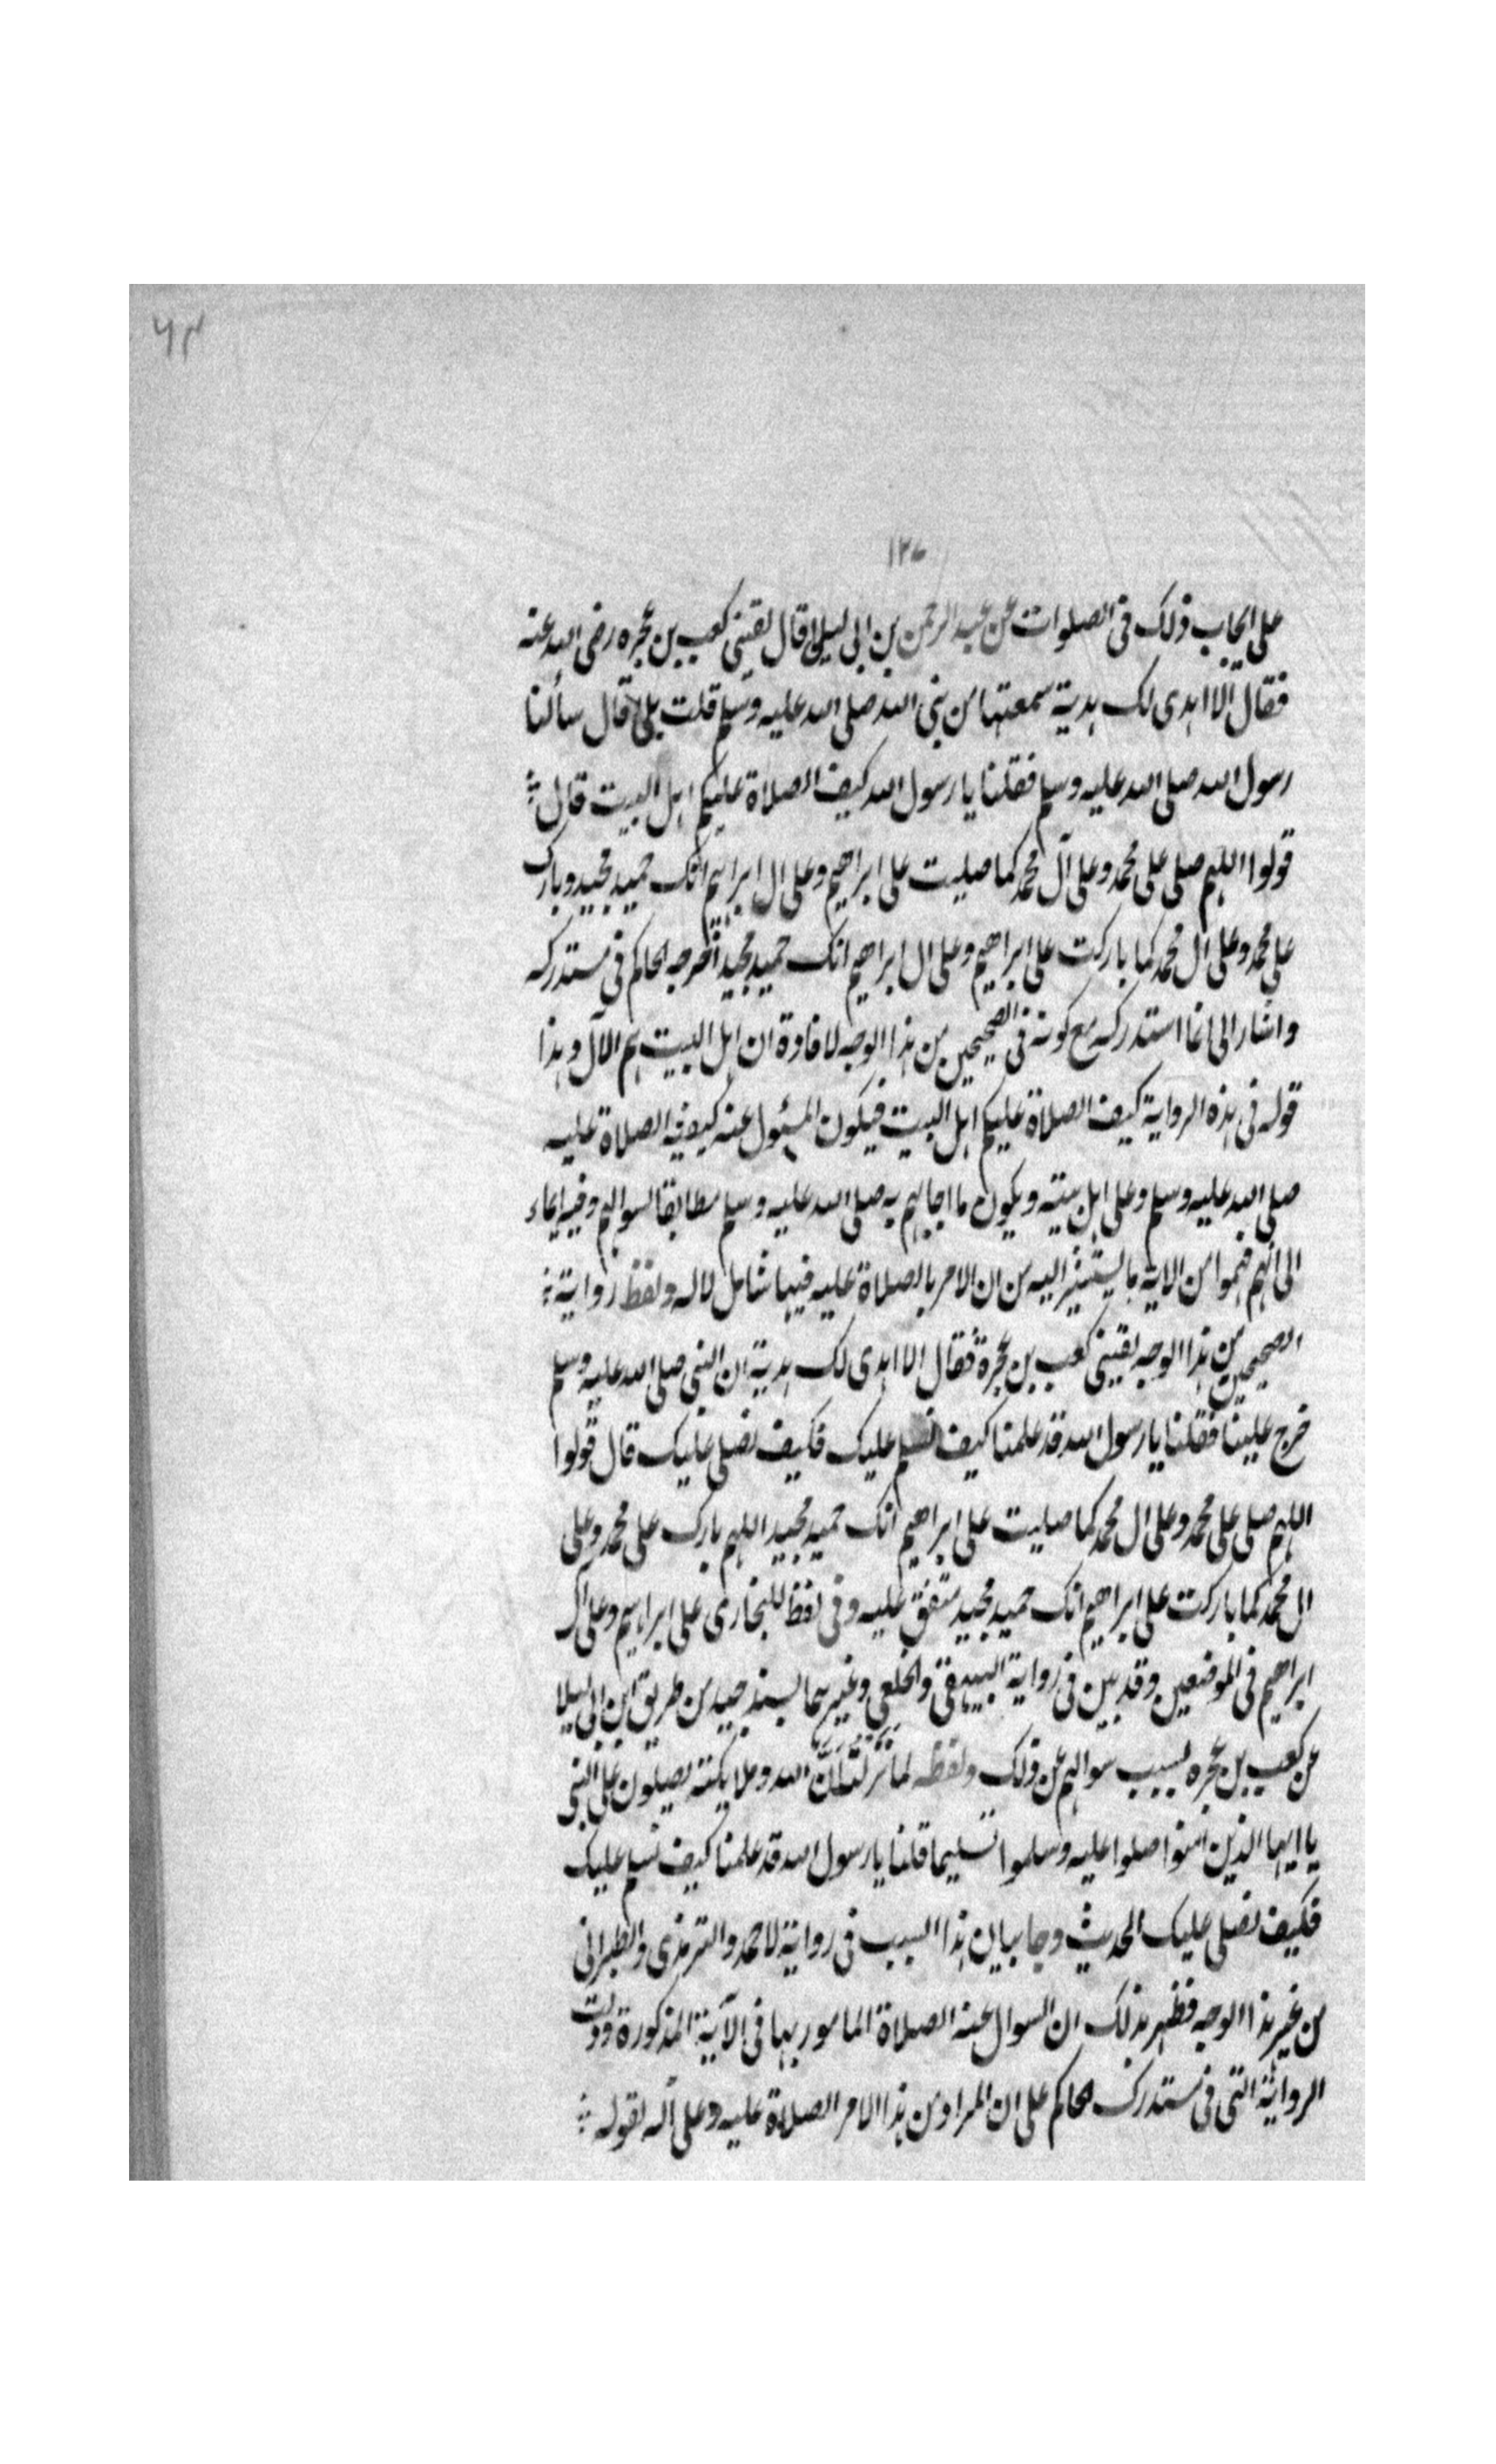 ٦٣
١٢٦
على ايجاب ذلك فى الصلوات عن عبد الرحمن بن ابى ليلى قال لقينى كعب بن عجره رضى الله عنه
فقال الا اهدى لك هدية سمعتها من نبى الله صلى الله عليه وسلم قلت بلى قال سألنا
رسول الله صلى الله عليه وسلم فقلنا يا رسول الله كيف الصلاة عليكم اهل البيت قال
قولوا اللهم صلى على محمد وعلى آل محمد كما صليت على ابراهيم وعلى ال ابراهيم انك حميد مجيد وبارك
على محمد وعلى ال محمد كما باركت على ابراهيم وعلى ال ابراهيم انك حميد مجيد أخرجه الحاكم فى مستدركه
واشار الى انما استدركه مع كونه فى الصحيحين من هذا الوجه لافادة ان اهل البيت هم الآل وهذا
قوله فى هذه الرواية كيف الصلاة عليكم اهل البيت فيكون المسئول عنه كيفية الصلاة عليه
صلى الله عليه وسلم وعلى اهل بيته ويكون ما اجابهم به صلى الله عليه وسلم مطابقا لسوالهم وفيه ايماء
الى انهم فهموا من الاية ما يستشير اليه من ان الامر بالصلاة عليه فيها شامل لاله ولفظ رواية
الصحيحين من هذا الوجه لقينى كعب بن عجرة فقال الا اهدى لك هدية ان النبى صلى الله عليه وسلم
خرج علينا فقلنا يا رسول الله قد علمنا كيف نسلم عليك فكيف نصلى عليك قال قولوا
اللهم صلى على محمد وعلى ال محمد كما صليت على ابراهيم انك حميد مجيد اللهم بارك على محمد وعلى
ال محمد كما باركت على ابراهيم انك حميد مجيد متفق عليه وفى لفظ للبخارى على ابراهيم وعلى ال
ابراهيم فى الموضعين وقد بين فى رواية البيهقى والخلعى وغيرهما بسند جيد من طريق ابن ابى ليلا
عن كعب بن عجره لسبب سوالهم عن ذلك ولفظه لما نزلت انّ الله وملايكته يصلون على النبى
يا ايها الذين امنوا صلوا عليه وسلموا تسليما قلنا يا رسول الله قد علمنا كيف نسلم عليك
فكيف نصلى عليك الحديث وجا بيان هذا السبب فى رواية لاحمد والترمذى والطبرانى
من غير هذا الوجه فظهر بذلك ان السوال عنه الصلاة المامور بها فى الآية المذكورة ودلت
الرواية التى فى مستدرك الحاكم على ان المراد من هذا الامر الصلاة عليه وعلى آله لقوله